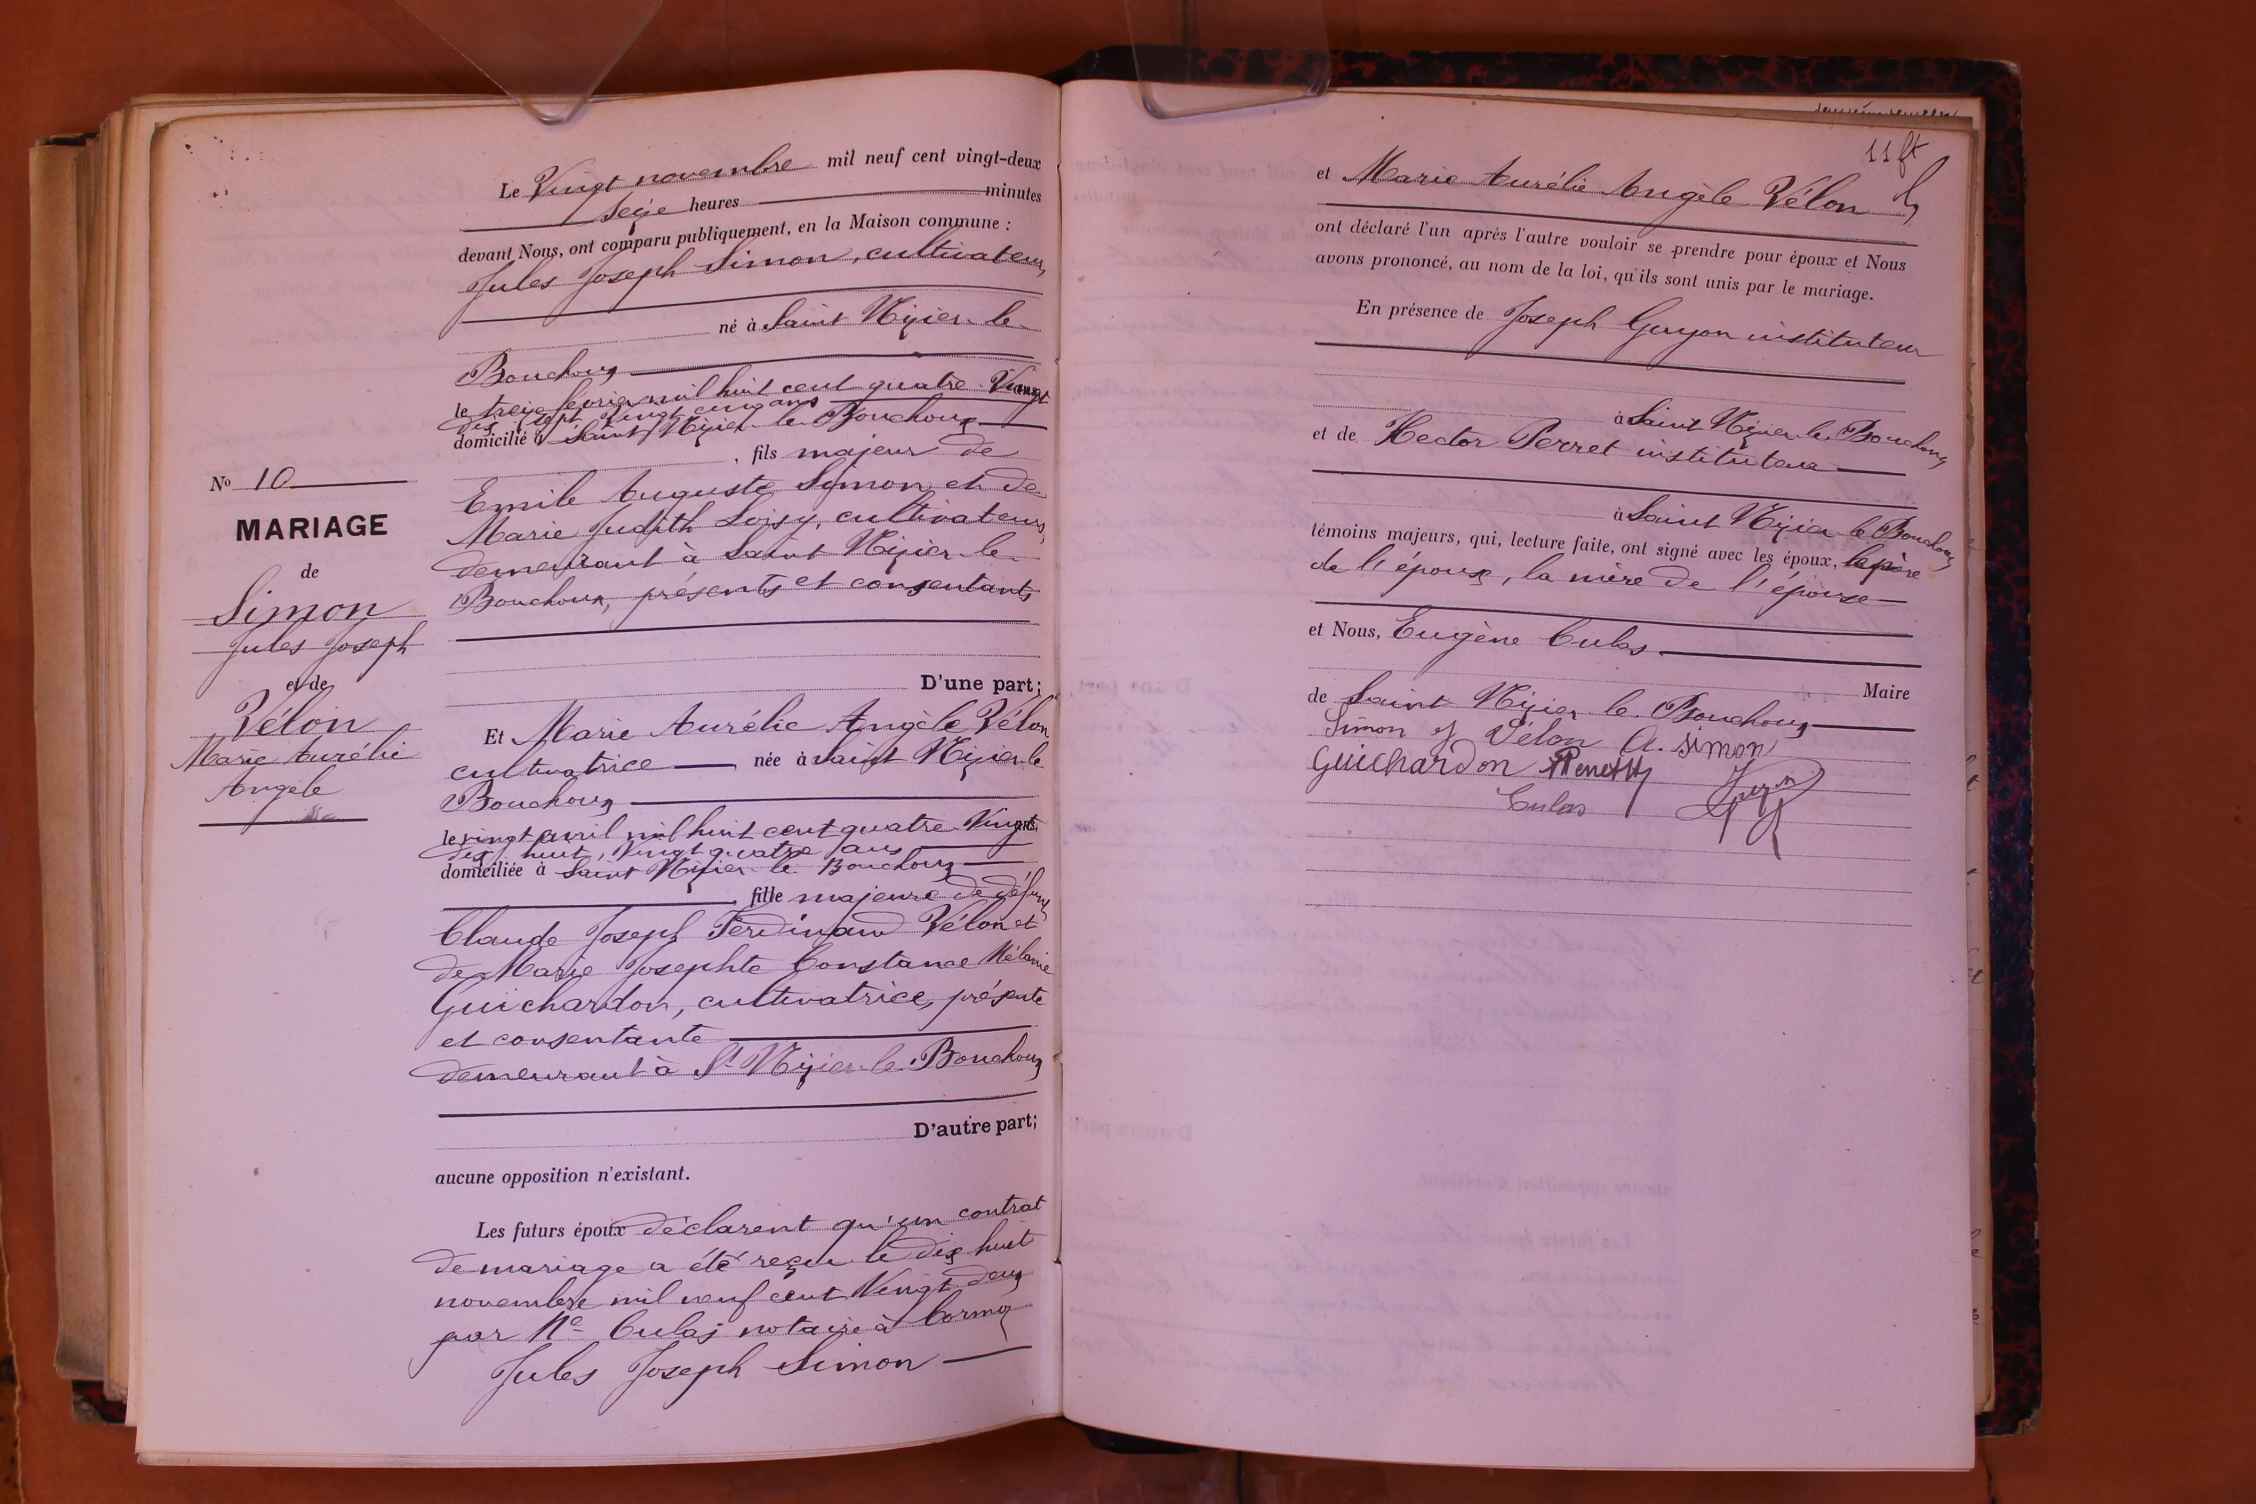 Le Vingt novembre mil neuf cent vingt-deux
seize heures minutes
devant Nous, ont comparu publiquement, en la Maison commune :
Jules Joseph Simon, cultivateur,
né à Saint Nizier le
Bouchoux
le treize février mil huit cent quatre Vingt
dix sept, vingt cinq ans
domicilié à Saint Nizier le Bouchoux
, fils majeur de
Emile Auguste Simon et de
Marie Judith Loisy, cultivateurs,
demeurant à Saint Nizier le
Bouchoux, présents et consentants
D'une part;
No 10
MARIAGE
de
Simon
Jules Joseph
et de
Vélon
Marie Aurélie
Angèle
Et Marie Aurélie Angèle Vélon
cultivatrice, née à Saint Nizier le
Bouchoux
le vingt avril mil huit cent quatre Vingt
dix huit, Vingt quatre ans
domiciliée à Saint Nizier le Bouchoux
, fille majeure de défunt
Claude Joseph Ferdinand Vélon et
de Marie Josephte Constance Mélanie
Guichardon, cultivatrice, présente
et consentante
demeurant à St Nizier le Bouchoux
D'autre part;
aucune opposition n'existant.
Les futurs époux déclarent qu'un contrat
de mariage a été reçu le dix huit
novembre mil neuf cent Vingt deux
par Me Culas notaire à Cormoz
Jules Joseph Simon
11 ft
et Marie Aurélie Angèle Vélon
ont déclaré l'un après l'autre vouloir se prendre pour époux et Nous
avons prononcé, au nom de la loi, qu'ils sont unis par le mariage.
En présence de Joseph Guyon instituteur
à Saint Nizier le Bouchoux
et de Hector Perret instituteur
à Saint Nizier le Bouchoux
témoins majeurs, qui, lecture faite, ont signé avec les époux, le père
de l'époux, la mère de l'épouse
et Nous, Eugène Culas
Maire
de Saint Nizier le Bouchoux
Simon J Vélon A. Simon
Guichardon Guyon
Culas